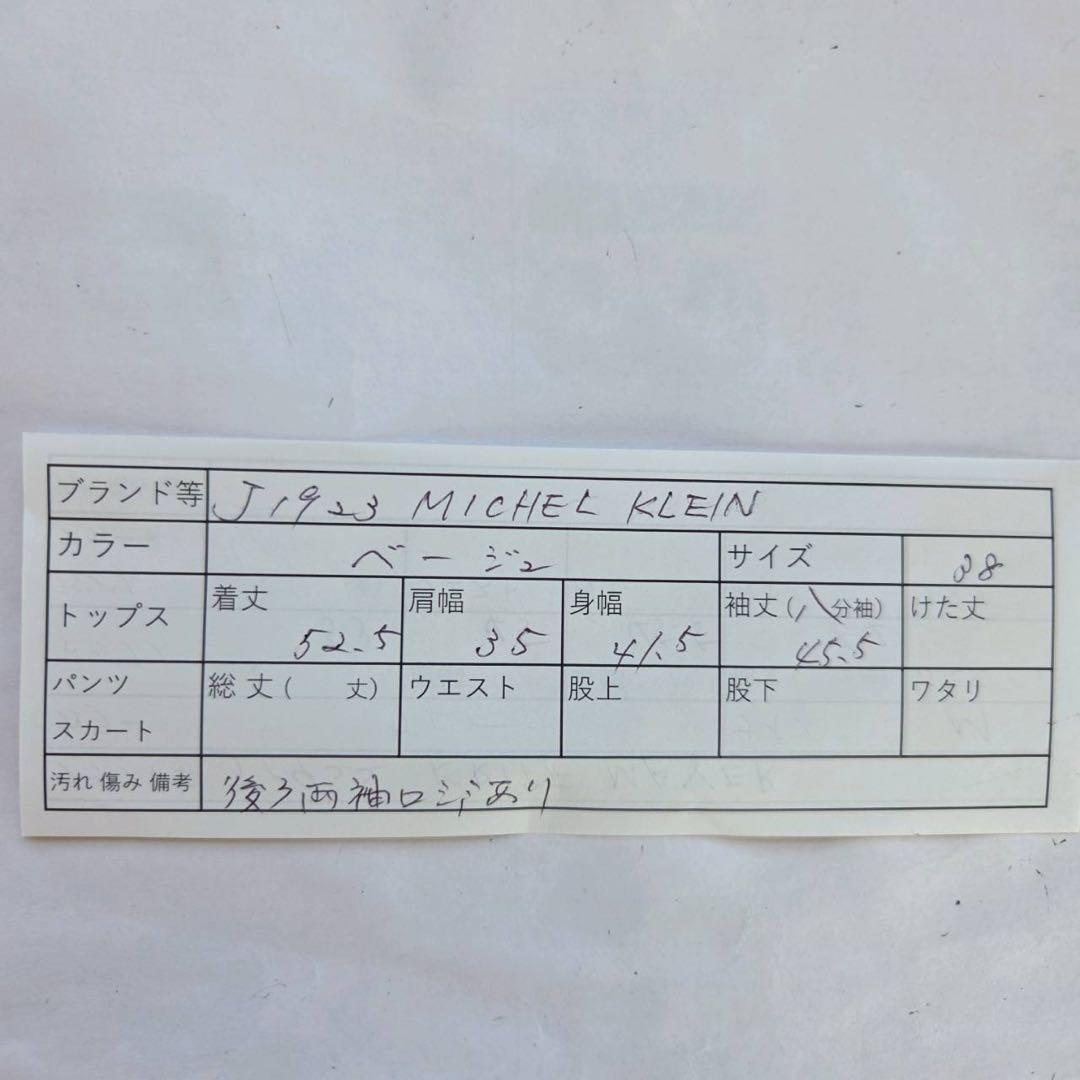 ブランド等 J1923 MICHEL KLEIN
カラー ベージュ サイズ 38
トップス 着丈 52.5 肩幅 35 身幅 41.5 袖丈( 分袖) 45.5 けた丈
パンツ スカート 総丈( 丈) ウエスト 股上 股下 ワタリ
汚れ 傷み 備考 後ろ両袖口シミあり